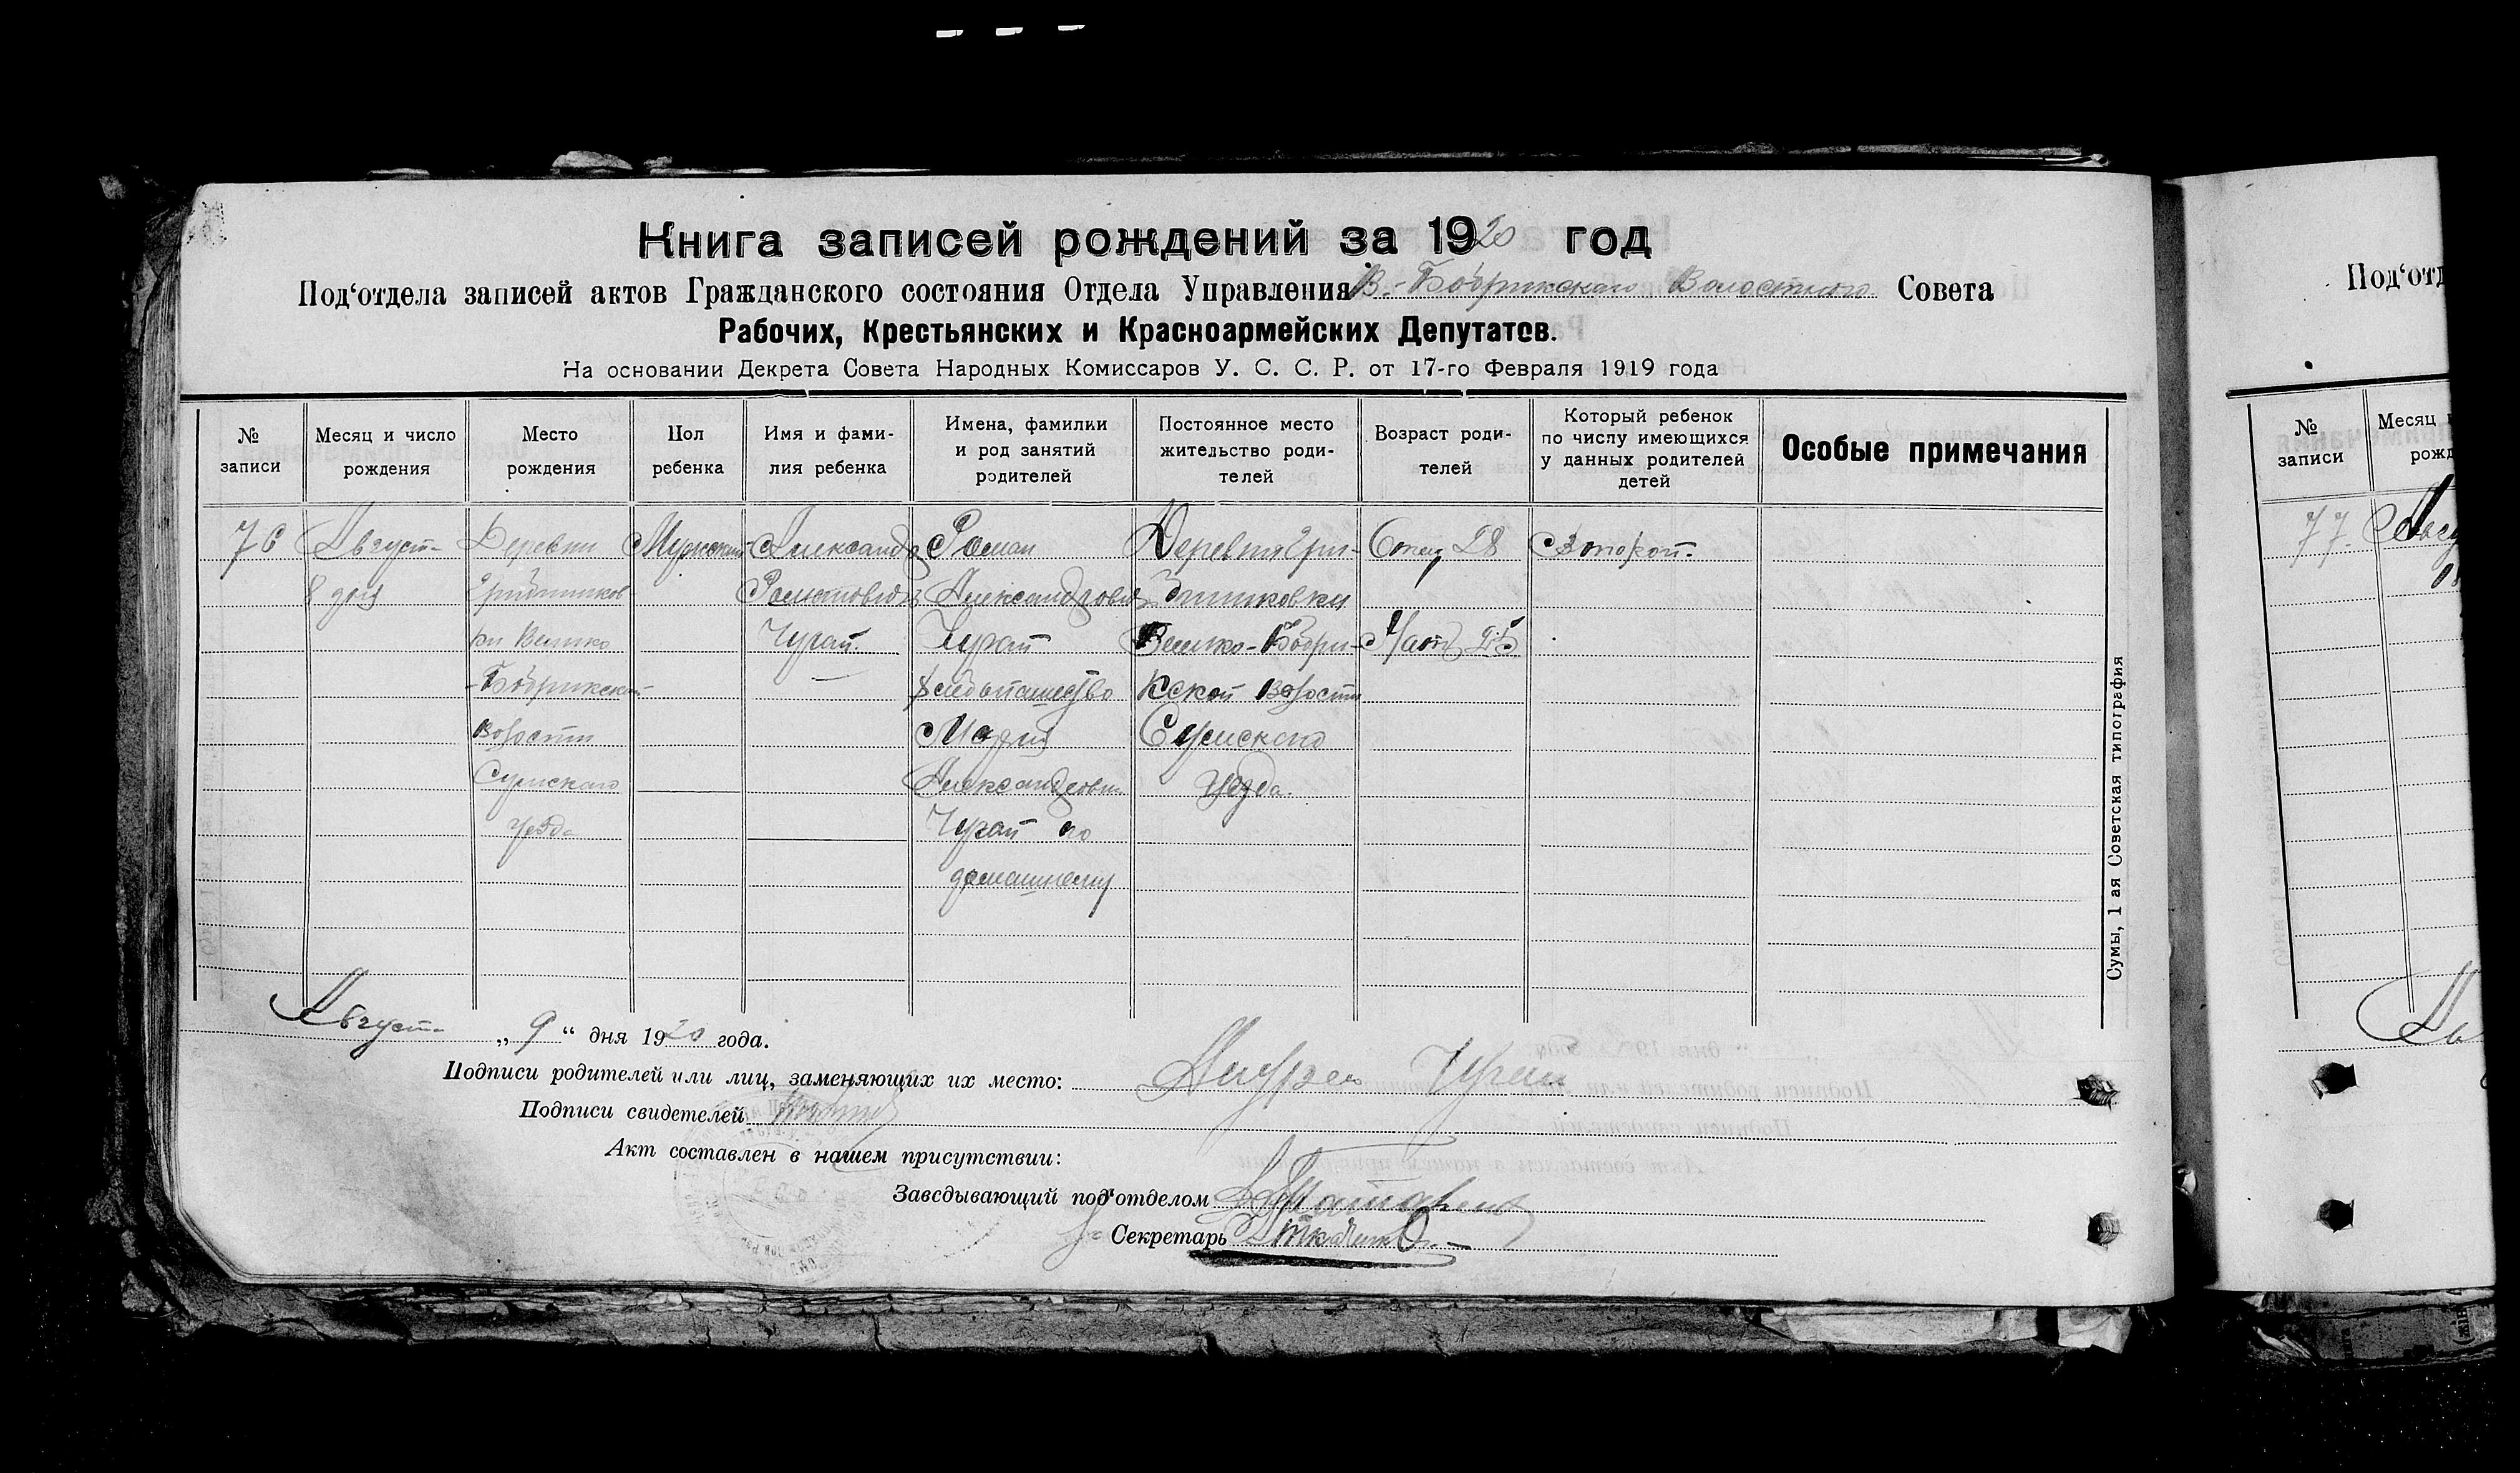 Книга записей рождений за 1920 год
Под‘отдела записей актов Гражданского состояния Отдела Управления В.-Бобрикскаго Волостного Совета
Рабочих, Крестьянских и Красноармейских Депутатов.
На основании Декрета Совета Народных Комиссаров У. С. С. Р. от 17-го Февраля 1919 года
№ записи
Месяц и число рождения
Место рождения
Пол ребенка
Имя и фами-
лия ребенка
Имена, фамилии
и род занятий
родителей
Постоянное место
жительство роди-
телей
Возраст роди-
телей
Который ребенок
по числу имеющихся
у данных родителей
детей
Особые примечания
76
Август
8 дня
Деревни
ки Велико
-Бобрикской
волости
Сумскаго
уезда
Мужской
Александр
Романовичъ
Чугай.
Роман
Александрович
Чугай
Мария
Александровна
Чугай по
домашнему
Деревня Гри-
Велико-Бобри-
кской волости
Сумского
уезда.
Отцу 28
Мать 25
Второй.
Сумы, 1 ая Советская типография
Август „ 9 “ дня 1920 года.
Подписи родителей или лиц, заменяющих их место: Чугай
Подписи свидетелей
Акт составлен в нашем присутствии:
Заведывающий под‘отделом
Секретарь
Под‘отд
№ записи
Месяц
рожд
77.